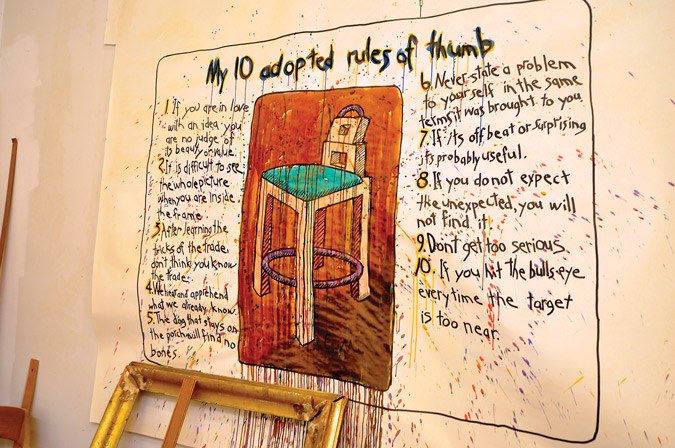 My 10 adopted rules of thumb
1. If you are in love
with an idea you
are no judge of
its beauty or value.
2. It is difficult to see
the whole picture
when you are inside
the frame
3. After learning the
tricks of the trade,
don't think you know
the trade.
4. We hear and apprehend
what we already know.
5. The dog that stays on
the porch will find no
bones.
6. Never state a problem
to yourself in the same
terms it was brought to you
7. If its off beat or surprising
its probably useful.
8. If you do not expect
the unexpected, you will
not find it
9. Don't get too serious.
10. If you hit the bullseye
every time the target
is too near.